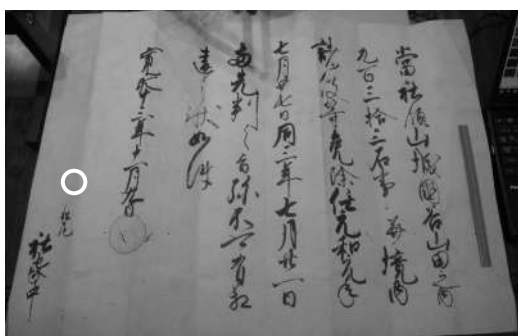 當社領山城國谷山田之内
九百三拾三石事并境内
諸役等免除任元和元年
七月廿七日同三年七月廿一日
両先判之旨弥不可有相
違之状如件
寛永十三年十一月九日
松尾
社家中